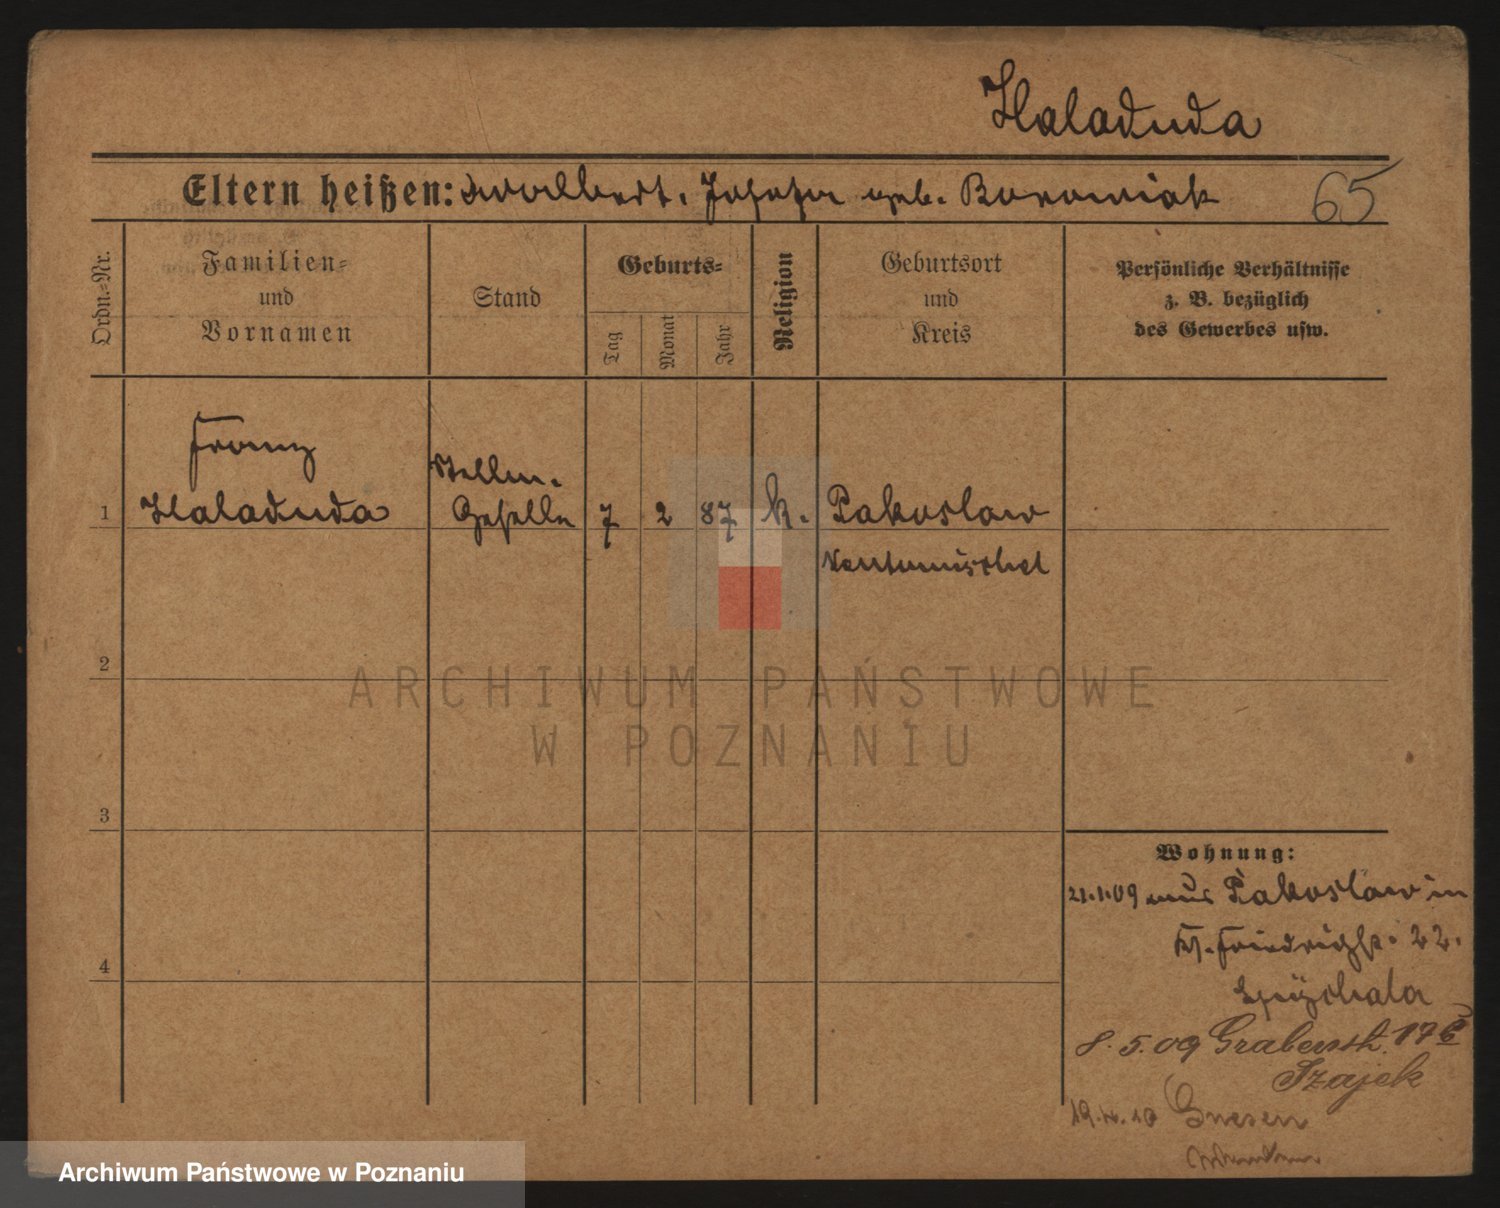 Haladuda
Eltern heißen: Adalbert, Josefa geb. Borowiak 65
Ordn.-Nr.
Familien-
und
Vornamen
Stand
Geburts-
Tag
Monat
Jahr
Religion
Geburtsort
und
Kreis
Persönliche Verhältnisse
z. B. bezüglich
des Gewerbes usw.
Franz
1 Haladuda
Geselle 7 2 87 k. Pakoslaw
Neutomischel
2
3
4
Wohnung:
21.1.09 aus Pakoslaw in
Friedrichstr. 22.
8.5.09 Grabenstr. 17
Szajek
Gnesen
ARCHIWUM PAŃSTWOWE
W POZNANIU
Archiwum Państwowe w Poznaniu